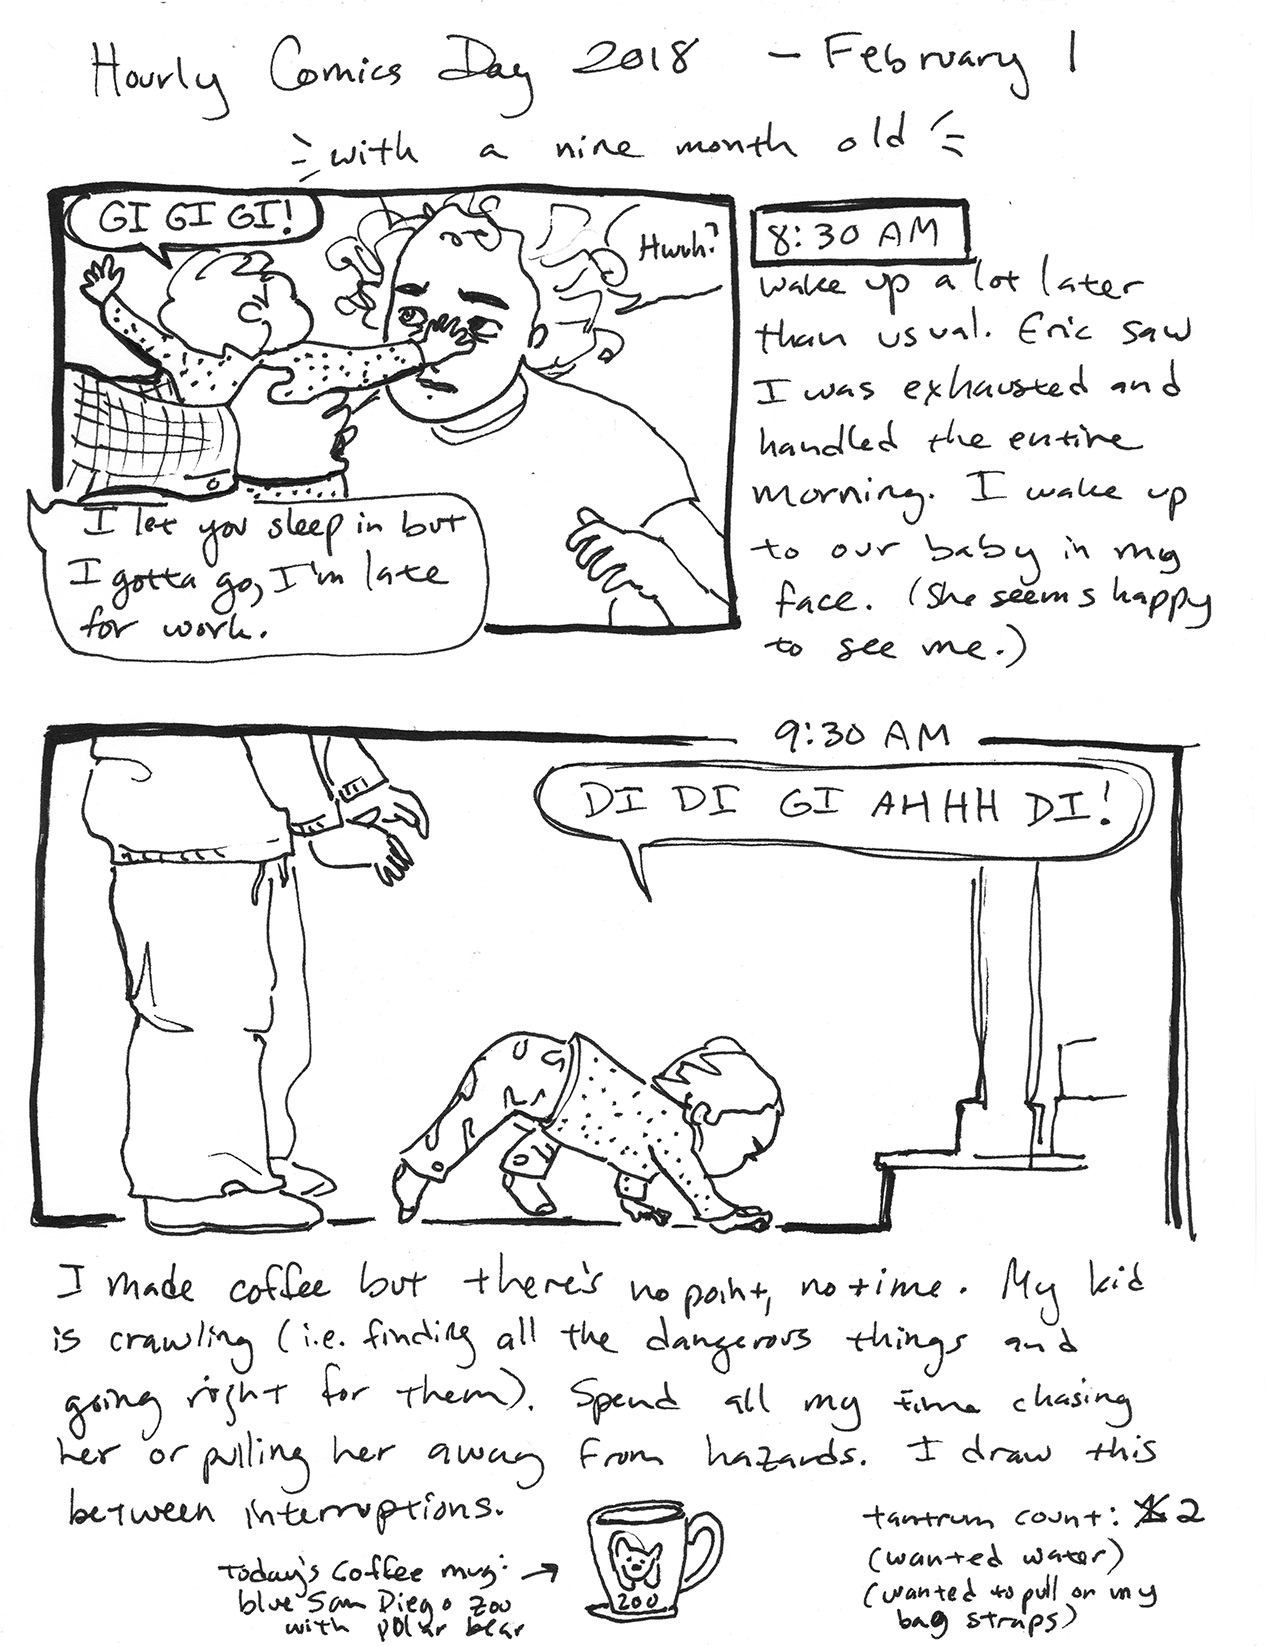 Hourly Comics Day 2018 - February 1
with a nine month old
GI GI GI!
Hwuh?
I let you sleep in but
I gotta go, I'm late
for work.
8:30 AM
wake up a lot later
than usual. Eric saw
I was exhausted and
handled the entire
morning. I wake up
to our baby in my
face. (She seems happy
to see me.)
9:30 AM
DI DI GI AHHH DI!
I made coffee but there's no point, no time. My kid
is crawling (i.e. finding all the dangerous things and
going right for them). Spend all my time chasing
her or pulling her away from hazards. I draw this
between interruptions.
Today's coffee mug:
blue San Diego Zoo
with polar bear
ZOO
tantrum count: 2
(wanted water)
(wanted to pull on my
bag straps)